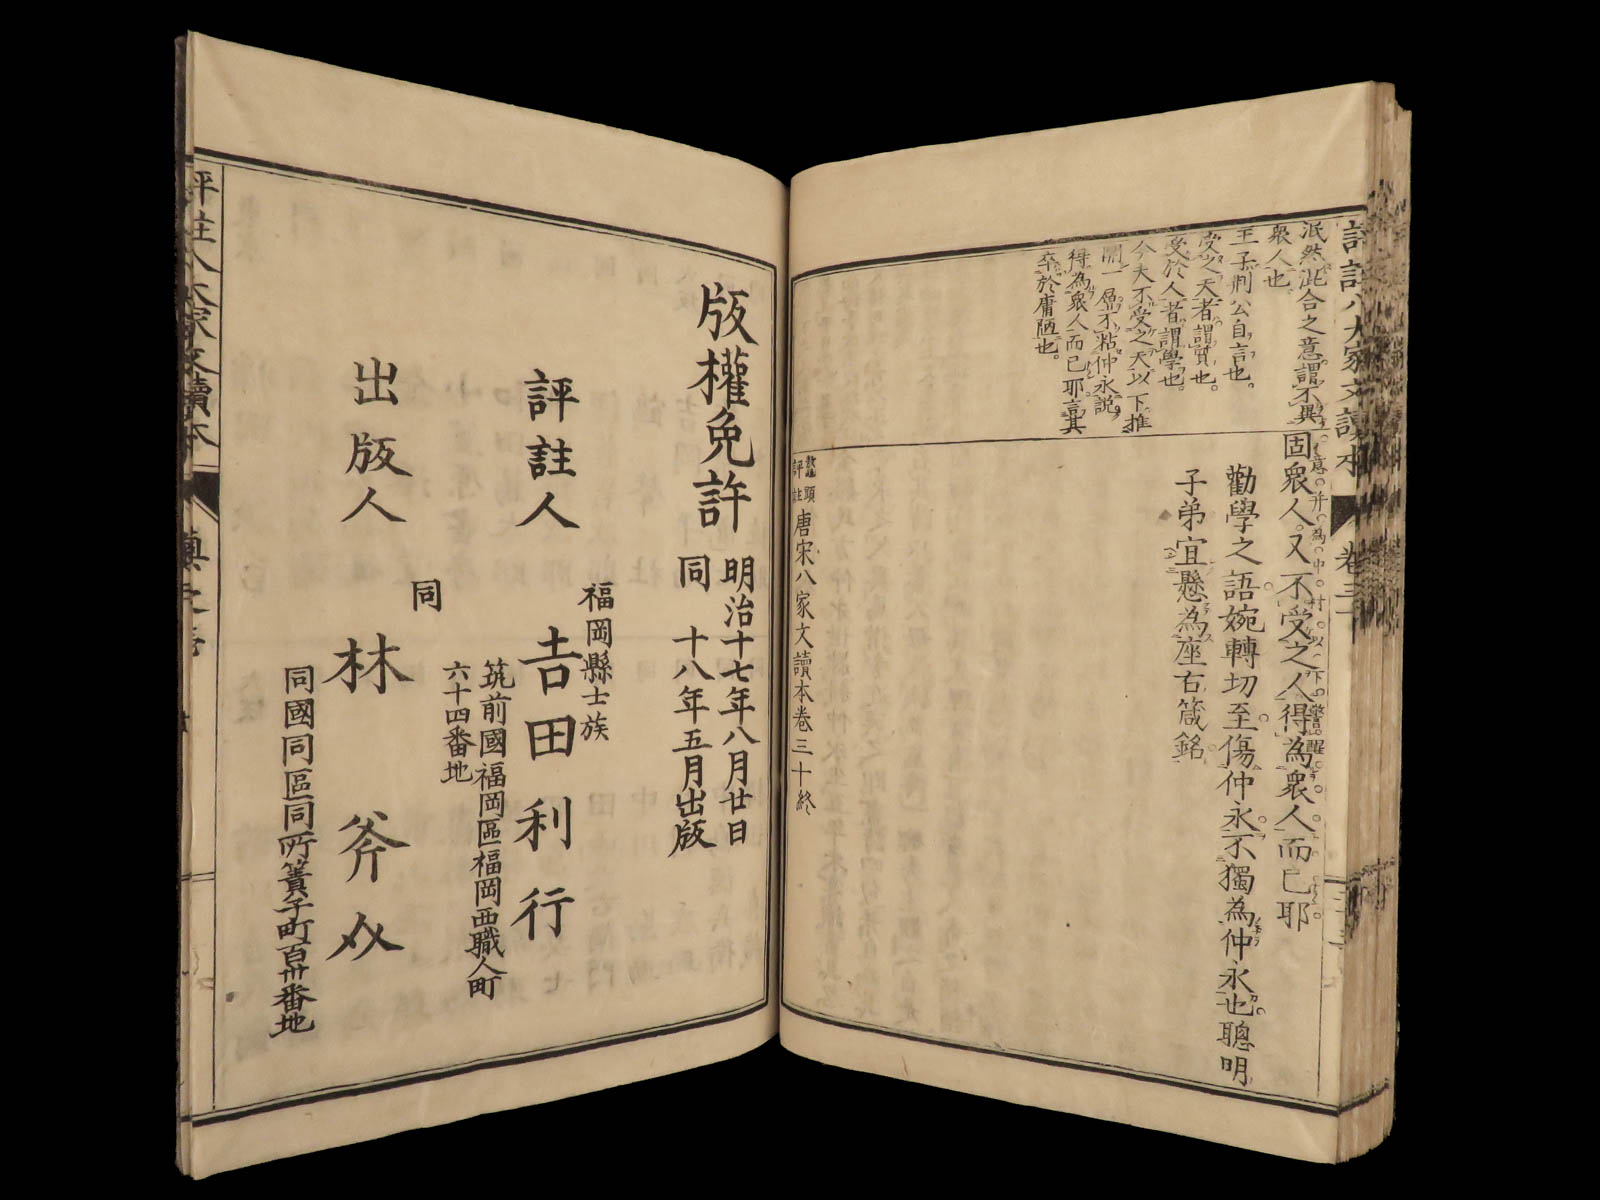 評註八大家文讀本
卷三十
泯然泚合之意謂不異
衆人也
王子荆公自言也
受之天者謂質也
受於人者謂學也
今夫不受之天以下推
開一層不粘仲永説
得為衆人而已耶言其
卒於庸陋也
固衆人又不受之人得為衆人而已耶
意并為中材以下警醒
勸學之語婉轉切至傷仲永不獨為仲永也聰明
子弟宜懸為座右箴銘
鼇頭評註唐宋八家文讀本卷三十終
版權免許
明治十七年八月廿日
同 十八年五月出版
福岡縣士族
評註人 吉田利行
筑前國福岡區福岡西職人町
六十四番地
同
出版人 林 斧㕛
同國同區同所簀子町百卅番地
評註八大家文讀本